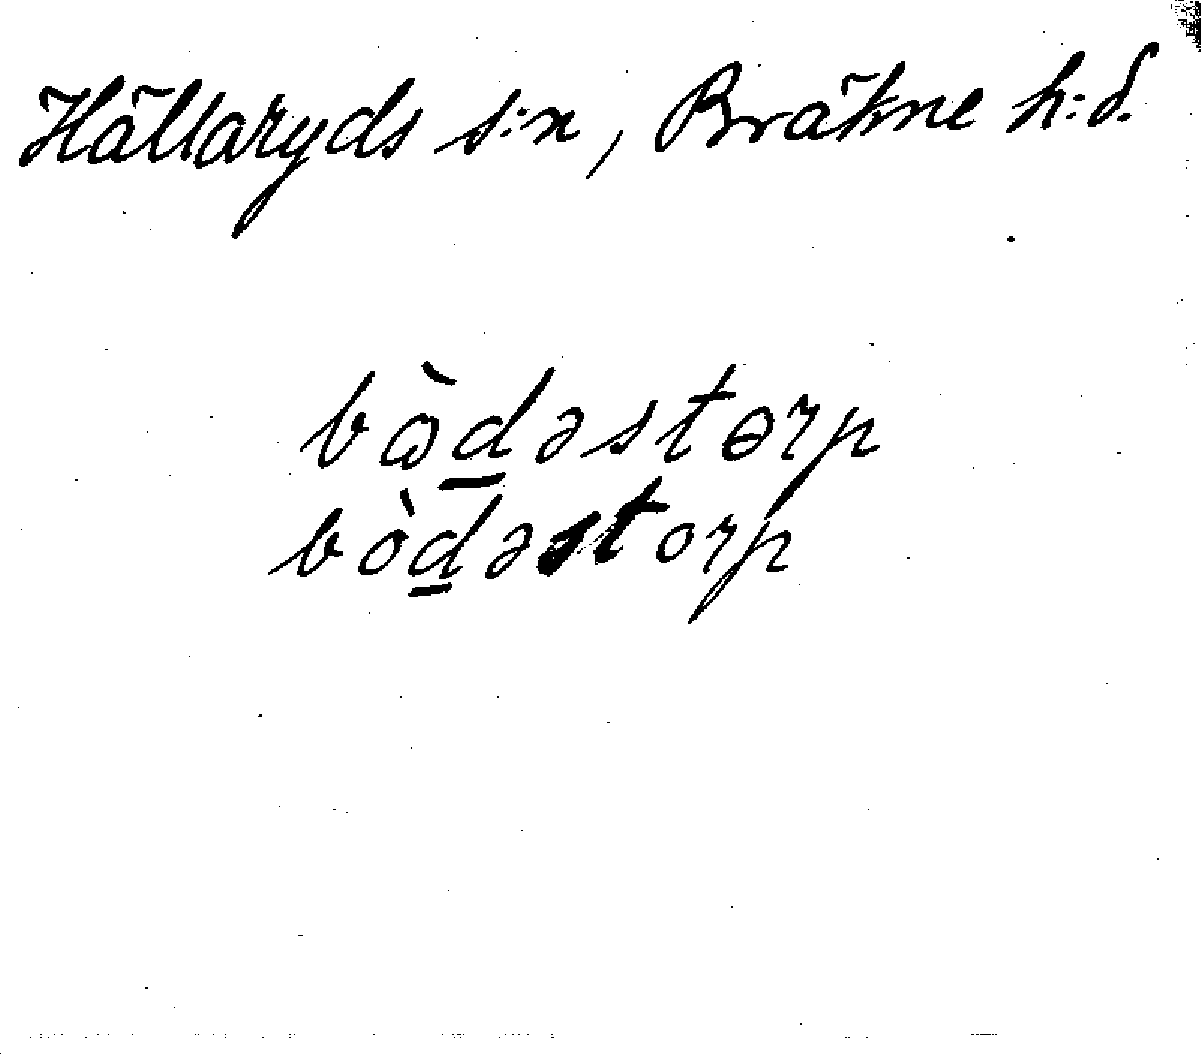 Hällaryds s:n, Bräkne h:d.
bɷ̀d̲əstɵrp
bòd̲əstorp